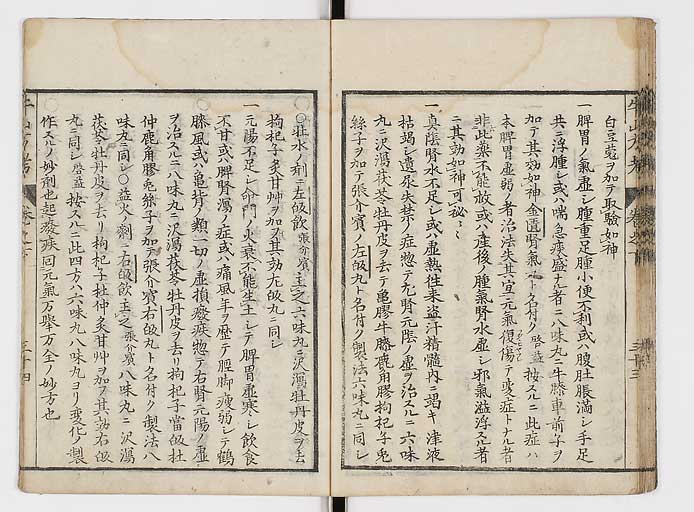 白豆蔲ヲ加テ取驗如神
一脾胃ノ氣虛シ腫重足腫小便不利或ハ腹肚脹滿シ手足
共ニ浮腫シ或ハ喘急痰盛ナル者ニ八味丸ニ牛膝車前子ヲ
加テ其効如神金匱腎氣ト名付ク啓益按スルニ此症ハ
本脾胃虛弱ノ者治法失其宜元氣復傷テ変症トナル者
非此藥不能救或ハ產後ノ腫氣腎水虛シ邪氣溢浮スル者
ニ其効如神可秘〻
一真陰腎水不足シ或ハ虛熱往来盗汗精髓內ニ竭キ津液
枯竭シ遺尿失禁ノ症惣テ左腎元陰ノ虛ヲ治スルニ六味
丸ニ沢瀉茯苓牡丹皮ヲ去テ亀膠牛膝鹿角膠枸杞子兎
絲子ヲ加テ張介賓ノ左皈丸ト名付ク製法六味丸ニ同シ
○壯水ノ劑ニ左皈飲張介賓主之六味丸ニ沢瀉牡丹皮ヲ去
枸杞子炙甘艸ヲ加ヲ其効左皈丸ニ同シ
一元陽不足シ命門ノ火衰不能生土シテ脾胃虛寒シ飲食
不甘或ハ脾腎瀉ノ症或ハ痛風年ヲ歴テ脛脚瘦弱シテ鶴
膝風或ハ亀背ノ類一切ノ虛損癈疾惣テ右腎元陽ノ虛
ヲ治スルニ八味丸ニ沢瀉茯苓牡丹皮ヲ去リ枸杞子當皈杜
仲鹿角膠兎絲子ヲ加テ張介賓右皈丸ト名付ク製法八
味丸ニ同シ○益火ノ劑ニ右皈飲主之張介賓八味丸ニ沢瀉
茯苓牡丹皮ヲ去リ枸杞子杜仲炙甘艸ヲ加ヲ其効右皈
丸ニ同シ啓益按スルニ此四方ハ六味丸八味丸ヨリ変化ノ製
作スルノ妙劑也起癈疾回元氣万舉万全ノ妙方也